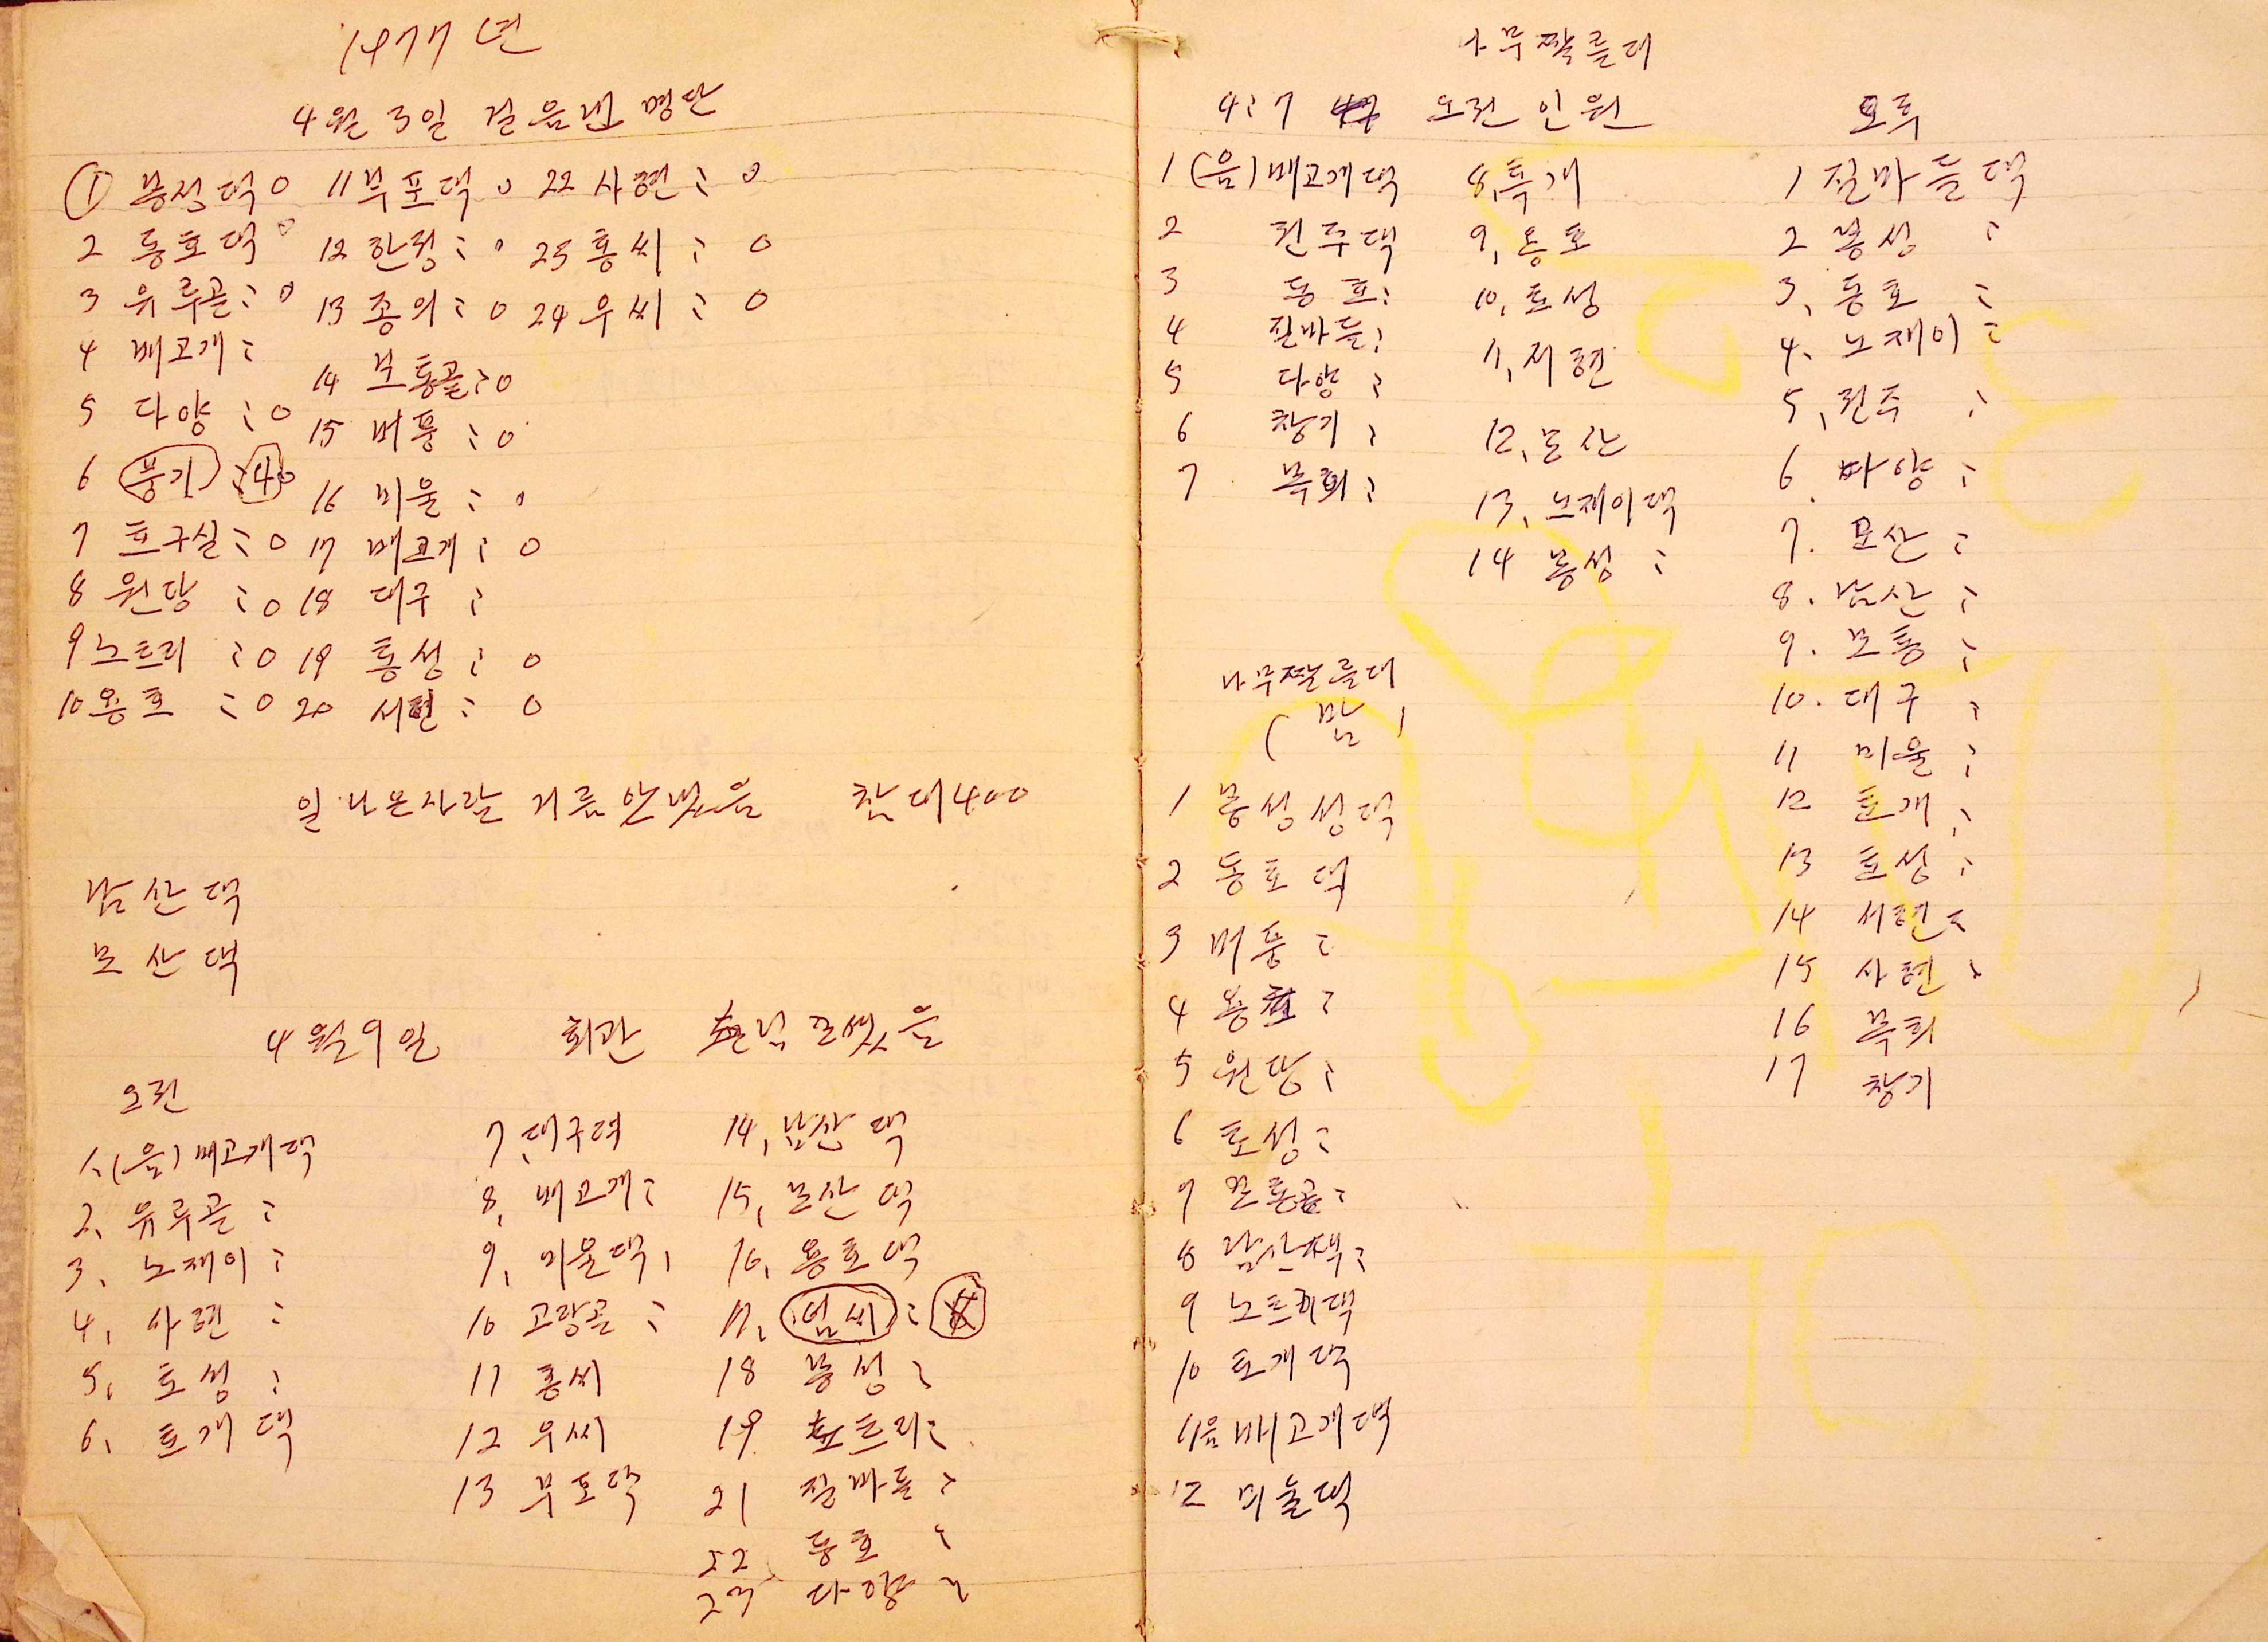 1977년
4월 3일 걸음낸 명단
① 봉성댁 0 11 부포댁 0 22 사현 : 0
2 동호댁 0 12 한정 : 0 23 홍씨 : 0
3 유루골 : 0 13 종의 : 0 24 우씨 : 0
4 배고개 : 14 보통골 : 0
5 다양 : 0 15 버풍 : 0
6 풍기 : 40 16 미울 : 0
7 호구실 : 0 17 배고개 : 0
8 원당 : 0 18 대구 :
9 노트리 : 0 19 통성 : 0
10 용호 : 0 20 서현 : 0
일 나온사람 거름안냈음 참대400
남산댁
모산댁
4월 9일 회관 손님모셋음
오전
1, (음) 배고개댁 7, 대구댁 14, 남산댁
2, 유루골 : 8, 배고개 : 15, 모산댁
3, 노재이 : 9, 미울댁, 16, 용호댁
4, 사현 : 10 고랑골 : 17, 엄씨 :
5, 토성 : 11 홍씨 18 봉성 :
6, 토개댁 12 우씨 19 노트리 :
13 부포댁 21 질마들 :
22 동호 :
23 다양 :
나무짤를대
4:7 오전 인원
1 (음) 배고개댁 8, 톡개
2 전주댁 9, 용호
3 동호 : 10, 토성
4 질마들 : 11, 서현
5 다양 : 12, 모산
6 창기 : 13, 노재이댁
7 복희 : 14 봉성 :
나무짤를대
(밤)
1 봉성성댁
2 동호댁
3 버풍 :
4 용호 :
5 원당 :
6 토성 :
7 보통골 :
8 남산댁 :
9 노트리댁
10 토개댁
11 음배고개댁
12 미놀댁
오후
1 질마들댁
2 봉성 :
3, 동호 :
4. 노재이 :
5, 전주 :
6. 다양 :
7. 모산 :
8. 남산 :
9. 보통 :
10. 대구 :
11 미울 :
12 토개 :
13 토성 :
14 서현 :
15 사현 :
16 복희
17 창기